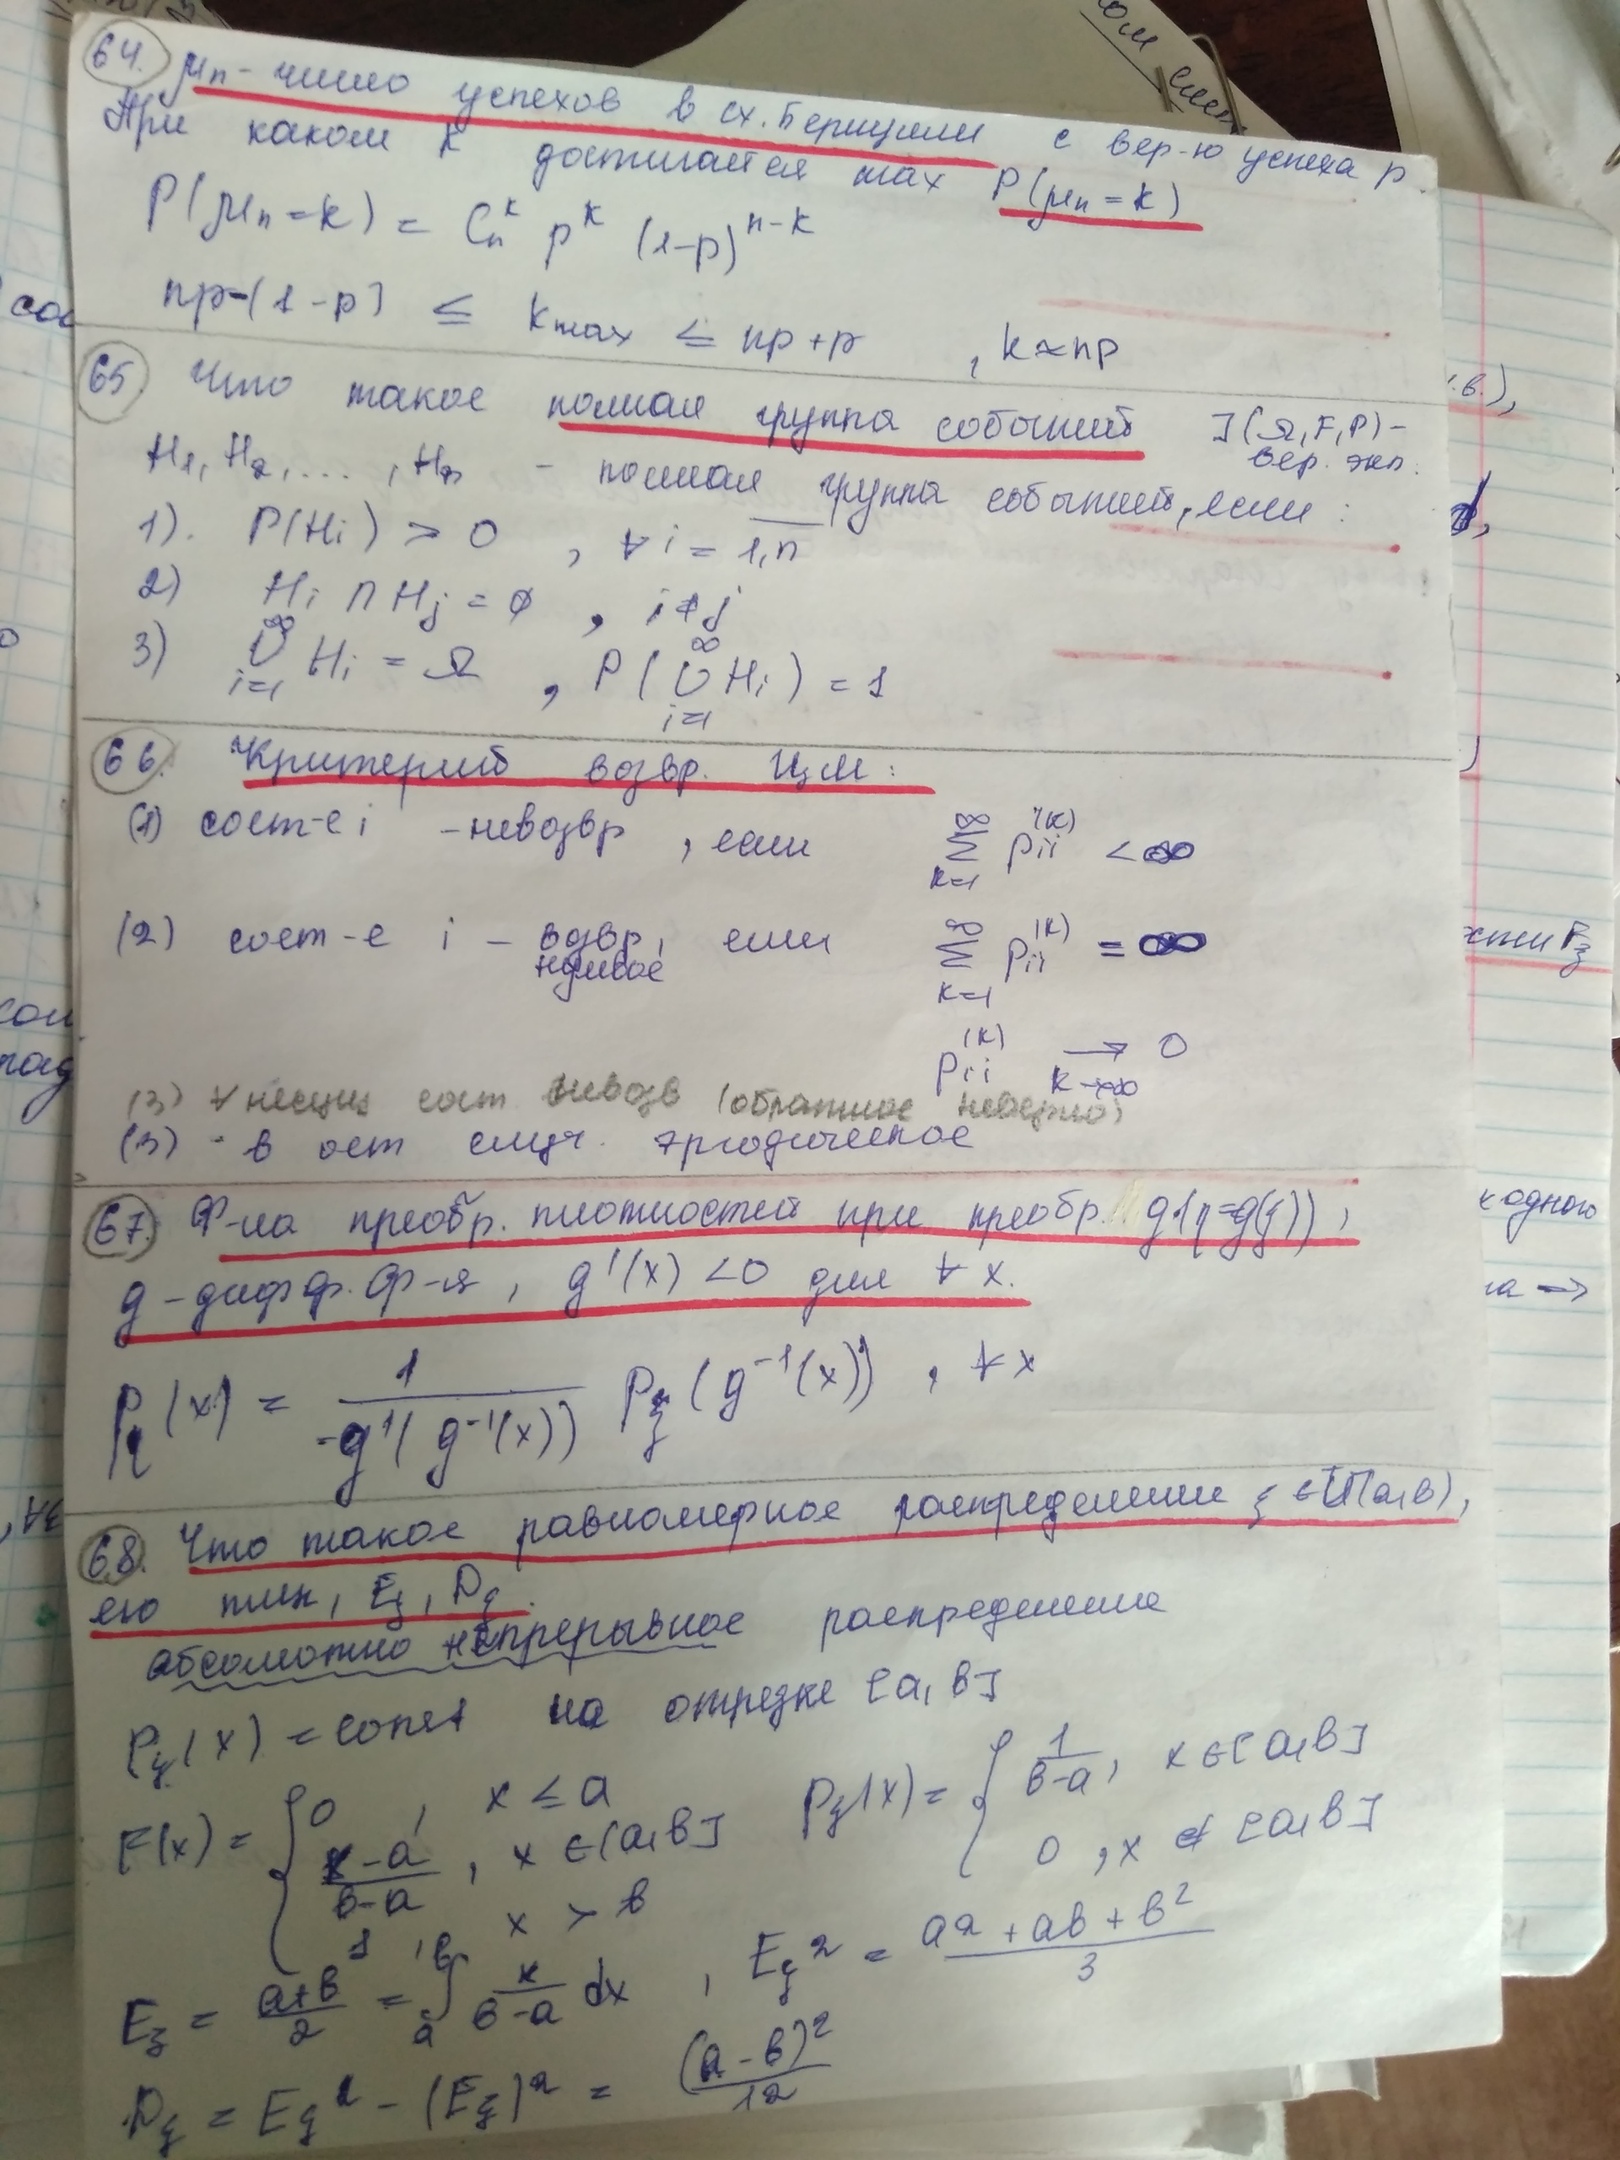 64. μn - число успехов в сх. Бернулли с вер-ю успеха p.
При каком k достигается max P(μn = k)
P(μn = k) = Cn^k p^k (1-p)^n-k
np-(1-p) ≤ kmax ≤ np+p , k≈np
65 Что такое полная группа событий ](Ω, F, P) -
вер. экп.
H1, H2, ... , Hn - полная группа событий, если :
1). P(Hi) > 0 , ∀ i = 1,n
2) Hi ∩ Hj = ∅ , i≠j
3) ∞∪i=1 Hi = Ω , P( ∞∪i=1 Hi ) = 1
66. Критерий возвр. ЦМ :
(1) сост-е i - невозвр , если ∞Σk=1 pii^(k) < ∞
(2) сост-е i - возвр, если ∞Σk=1 pii^(k) = ∞
нулевое
pii^(k) →k→∞ 0
(3) ∀ несущ сост невозв (обратное неверно)
(3) - в ост случ. эргодическое
67. Ф-ла преобр. плотностей при преобр. g (η=g(ξ)) ,
g - дифф. ф-я , g'(x) <0 для ∀ x.
pη(x) = 1 / -g'( g^-1(x)) pξ ( g^-1(x)) , ∀ x
68. Что такое равномерное распределение ξ ∈ U(a,b) ,
его плн, Eξ , Dξ.
абсолютно непрерывное распределение
Pξ(x) = const на отрезке [a, b]
F(x) = { 0 , x ≤ a
x-a / b-a , x ∈ [a,b]
1 , x > b
Pξ(x) = { 1 / b-a , x ∈ [a,b]
0 , x ∉ [a,b]
Eξ = a+b / 2 = ∫a^b x / b-a dx , Eξ^2 = a^2 + ab + b^2 / 3
Dξ = Eξ^2 - (Eξ)^2 = (a-b)^2 / 12